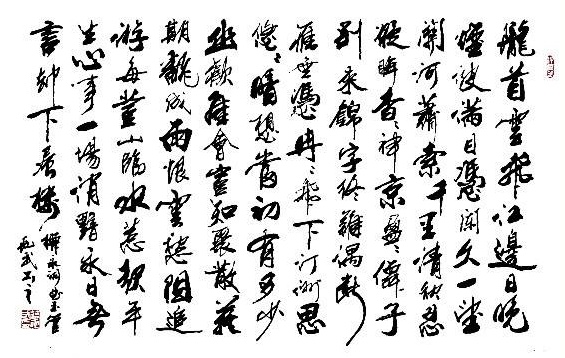 隴首雲飛江邊日晚
煙波滿目憑闌久一望
關河蕭索千里清秋忍
凝眸杳杳神京盈盈僊子
別來錦字終難偶斷
雁無憑冉冉飛下汀洲思
悠悠暗想當初有多少
幽歡佳會豈知聚散難
期翻成雨恨雲愁阻追
游每登山臨水惹起平
生心事一場消黯永日無
言卻下層樓 柳永詞曲玉管